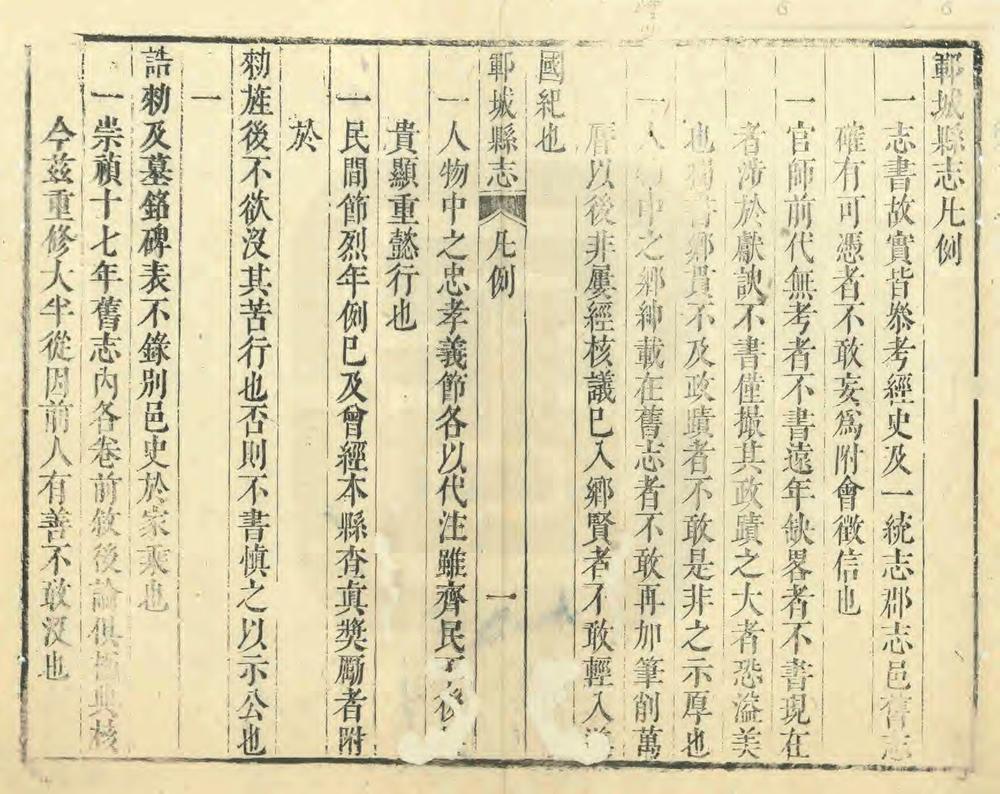 鄆城縣志凡例
一志書故實皆叅考經史及一統志郡志邑舊志
確有可憑者不敢妄爲附會徵信也
一官師前代無考者不書遠年缺畧者不書現在
者涉於獻諛不書僅撮其政蹟之大者恐溢美
也獨書鄉貫不及政蹟者不敢是非之示厚也
一人物中之鄉紳載在舊志者不敢再加筆削萬
厯以後非屢經核議已入鄉賢者不敢輕入遵
國紀也
鄆城縣志 凡例 一
一人物中之忠孝義節各以代注雖齊民了後
貴顯重懿行也
一民間節烈年例已及曾經本縣查眞獎勵者附
於
勅旌後不欲沒其苦行也否則不書愼之以示公也
一
誥勅及墓銘碑表不錄別邑史於家乘也
一崇禎十七年舊志內各卷前敘後論俱極典核
今茲重修大半從因前人有善不敢沒也